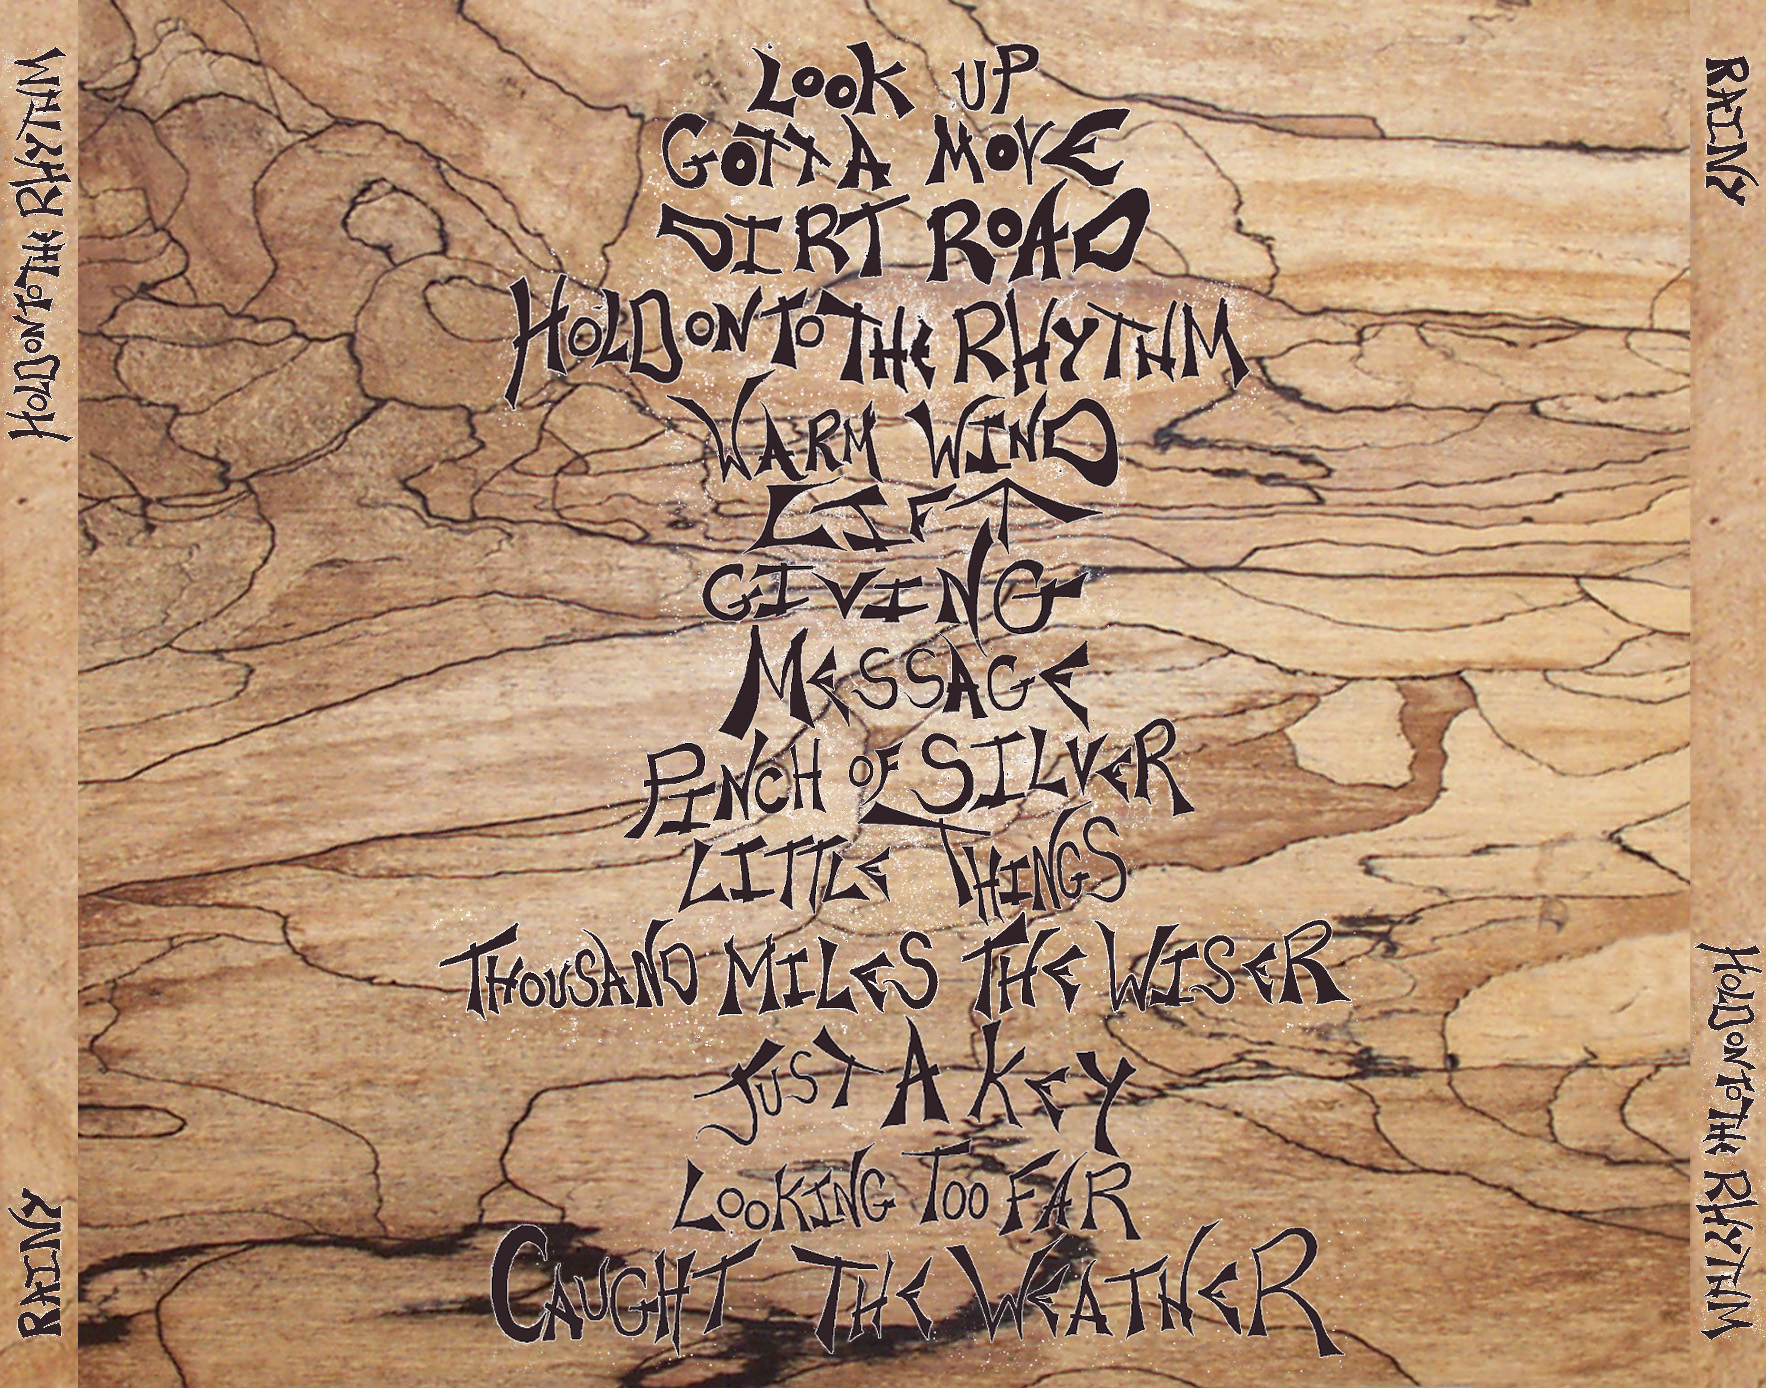 LOOK UP
GOTTA MOVE
DIRT ROAD
HOLD ON TO THE RHYTHM
WARM WIND
LIFT
GIVING
MESSAGE
PINCH OF SILVER
LITTLE THINGS
THOUSAND MILES THE WISER
JUST A KEY
LOOKING TOO FAR
CAUGHT THE WEATHER
HOLD ON TO THE RHYTHM
RAINY
RAINY
HOLD ON TO THE RHYTHM